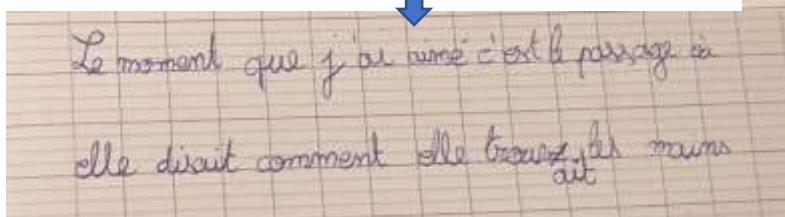 Le moment que j'ai aimé c'est le passage où
elle disait comment elle trouvait les mains